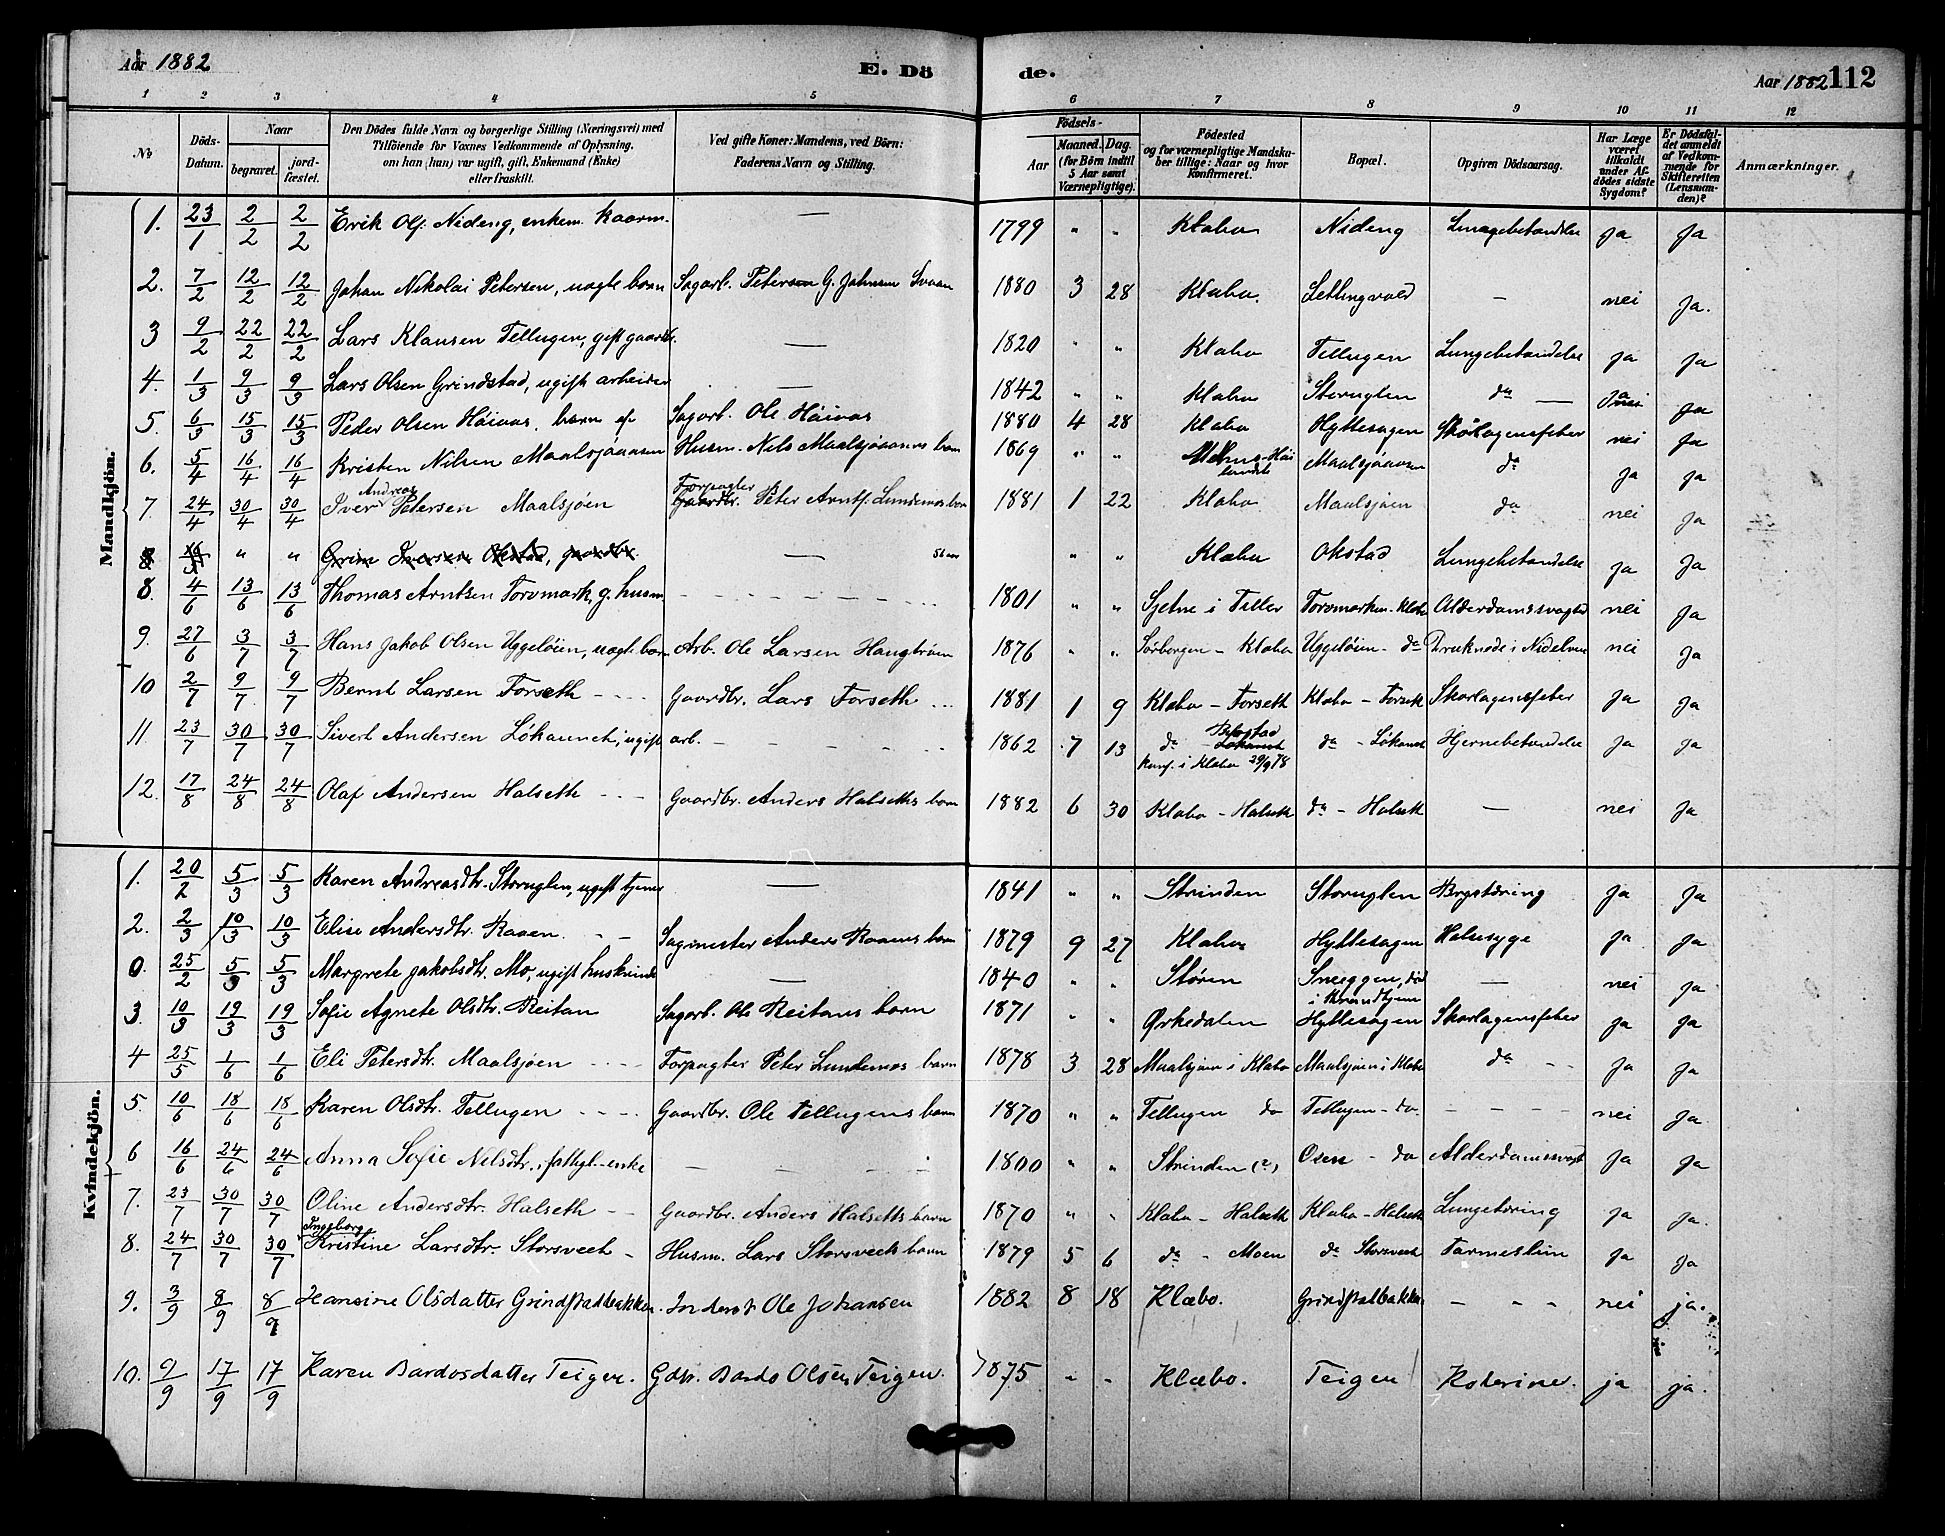 Aar 1882 E. Dö de. Aar 1882 112
1 2 3 4 5 6 7 8 9 10 11 12
No Döds-Datum. Naar begravet. jord-fæstet. Den Dödes fulde Navn og borgerlige Stilling (Næringsvei) med Tilföiende for Voxnes Vedkommende af Oplysning, om han (hun) var ugift, gift, Enkemand (Enke) eller fraskilt. Ved gifte Koner: Mandens, ved Börn: Faderens Navn og Stilling. Födsels- Aar Maaned. Dag. (for Börn indtil 5 Aar samt Værnepligtige). Födested og for værnepligtige Mandskaber tillige: Naar og hvor Konfirmeret. Bopæl. Opgiven Dödsaarsag. Har Læge været tilkaldt under Afdödes sidste Sygdom? Er Dödsfaldet anmeldt af Vedkommende for Skifteretten (Lensmanden)? Anmærkninger.
Mandkjön.
1. 23/1 2/2 2/2 Erik Ols. Nideng, enkem. kaarm. — 1799 " " Klabo Nideng Lungebetændelse ja ja
2. 7/2 12/2 12/2 Johan Nikolai Petersen, uægte barn Sagarb. Petersen G. Johnsen Svaan 1880 3 28 Klabo. Settingvold — nei ja.
3 9/2 22/2 22/2 Lars Klausen Tellugen, gift gaardbr. — 1820 " " Klabo Tellugen Lungebetændelse ja ja
4. 1/3 9/3 9/3 Lars Olsen Grindstad, ugift arbeider — 1842 " " Klabo Storuglen do — ja ja
5. 6/3 15/3 15/3 Peder Olsen Höivas, barn af Sagarb. Ole Höivas 1880 4 28 Klabo Hyttesagen Skarlagensfeber nei ja
6. 5/4 16/4 16/4 Kristen Nilsen Maalsjöaunen Husm. Nels Maalsjöaunens barn 1869 " " Maalsjöaunen da ja ja
7. 24/4 30/4 30/4 Iver Andreas Petersen Maalsjöen Forpagter Peter Arnts. Lundemos barn 1881 1 22 Klabo Maalsjöen da nei ja
8 " " Okstad, gaardbr. — 56 aar " " Klabo Okstad Lungebetændelse ja ja
8. 4/6 13/6 13/6 Thomas Arntsen Torvmark, g. husm. 1801 " " Sjetne i Tiller Torvmarken - Klabo Alderdomssvaghed nei ja
9. 27/6 3/7 3/7 Hans Jakob Olsen Uggelöien, uægte barn Arb. Ole Larsen Haugtröen 1876 " " Sørborgen - Klabo Uggelöien - da Druknede i Nidelven nei ja
10 2/7 9/7 9/7 Bernt Larsen Forseth Gaardbr. Lars Forseth 1881 1 9 Klabo - Forseth Klabo - Forseth Skarlagensfeber ja ja
11. 23/7 30/7 30/7 Sivert Andersen Løkaunet, ugift arb. 1862 7 13 da Løkaunet konf. i Klabo 29/9 78 da - Løkaunet Hjernebetændelse ja ja
12. 17/8 24/8 24/8 Olaf Andersen Halseth Gaardbr. Anders Halseths barn 1882 6 30 Klabo - Halseth da - Halseth — nei ja
Kvindekjön.
1. 20/2 5/3 5/3 Karen Andreasdtr. Storuglen, ugift tjener — 1841 " " Strinden Storuglen Brysttæring ja ja
2. 2/3 10/3 10/3 Elise Andersdtr. Raaen Sagmester Anders Raaens barn 1879 9 27 Klabo Hyttesagen Halssyge ja ja
0. 25/2 5/3 5/3 Margrete Jakobsdtr. Mo, ugift huskvinde — 1840 " " Støren Sneeggen, död i Throndhjem — nei ja
3. 10/3 19/3 19/3 Sofie Agnete Olsdtr. Reitan Sagarb. Ole Reitans barn 1871 " " Ørkedalen Hyttesagen Skarlagensfeber ja ja
4 25/5 1/6 1/6 Eli Petersdtr. Maalsjöen Forpagter Peter Lundemos barn 1878 3 28 Maalsjöen i Klabo Maalsjöen i Klabo da ja ja
5. 10/6 18/6 18/6 Karen Olsdtr. Tellugen Gaardbr. Ole Tellugens barn 1870 " " Tellugen do Tellugen - do. nei ja
6 16/6 24/6 24/6 Anna Sofie Nelsdtr., fattigl.-enke 1800 " " Strinden (?) Osen - do Alderdomssvagh. ja ja
7. 23/7 30/7 30/7 Oline Andersdtr. Halseth Gaardbr. Anders Halseths barn 1870 " " Klabo - Halseth Klabo - Halseth Lungetæring ja ja.
8. 24/7 30/7 30/7 Ingeborg Kristine Larsdtr. Storsveet Husm. Lars Storsveets barn 1879 5 6 da - Moen da Storsveet Tarmeslim ja ja
9. 3/9 8/9 8/9 Hansine Olsdatter Grindstadbakken. Inderst Ole Johansen 1882 8 18 Klæbo. Grindstadbakken — nei ja.
10. 9/9 17/9 17/9 Karen Bardosdatter Teigen. Gdbr. Bardo Olsen Teigen. 1875 " " Klæbo. Teigen Koleriner. ja ja.